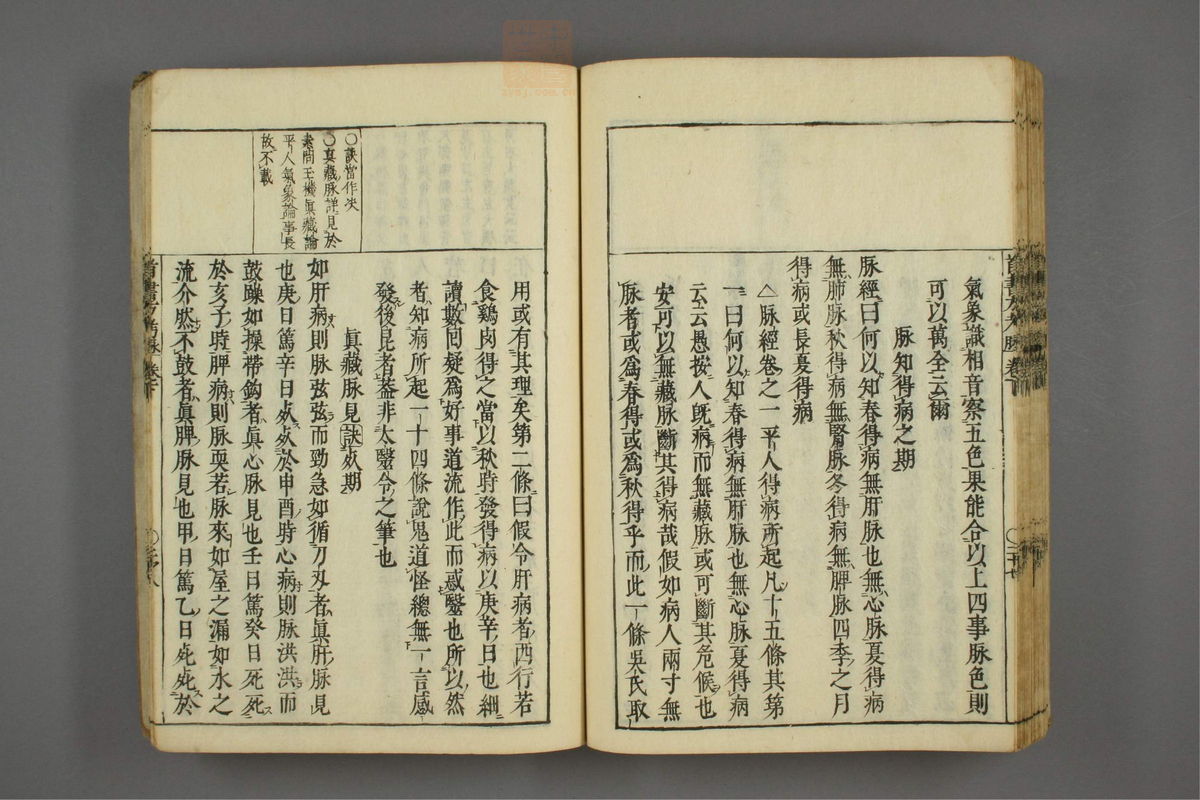 氣象識相音察五色果能合以上四事脉色則
可以萬全云爾
脉知得病之期
脉經曰何以知春得病無肝脉也無心脉夏得病
無肺脉秋得病無腎脉冬得病無脾脉四季之月
得病或長夏得病
△脉經卷之一平人得病所起凡十五條其第
一曰何以知春得病無肝脉也無心脉夏得病
云云愚按人既病而無藏脉或可斷其危候也
安可以無藏脉斷其得病哉假如病人兩寸無
脉者或爲春得或爲秋得乎而此一條吳氏取
○訣當作决
○真藏脉詳見於
素問玉機真藏論
平人氣象論事長
故不載
用或有其理矣第二條曰假令肝病者西行若
食鷄肉得之當以秋時發得病以庚辛日也細
讀數回疑爲好事道流作此而惑醫也所以然
者知病所起一十四條說鬼道怪總無一言感
發後昆者葢非太醫令之筆也
真藏脉見訣死期
如肝病則脉弦弦而勁急如循刀刃者眞肝脉見
也庚日篤辛日死死於申酉時心病則脉洪洪而
鼓躁如操帶鈎者眞心脉見也壬日篤癸日死死
於亥子時脾病則脉耎若脉來如屋之漏如水之
流介然不鼓者眞脾脉見也甲日篤乙日死死於